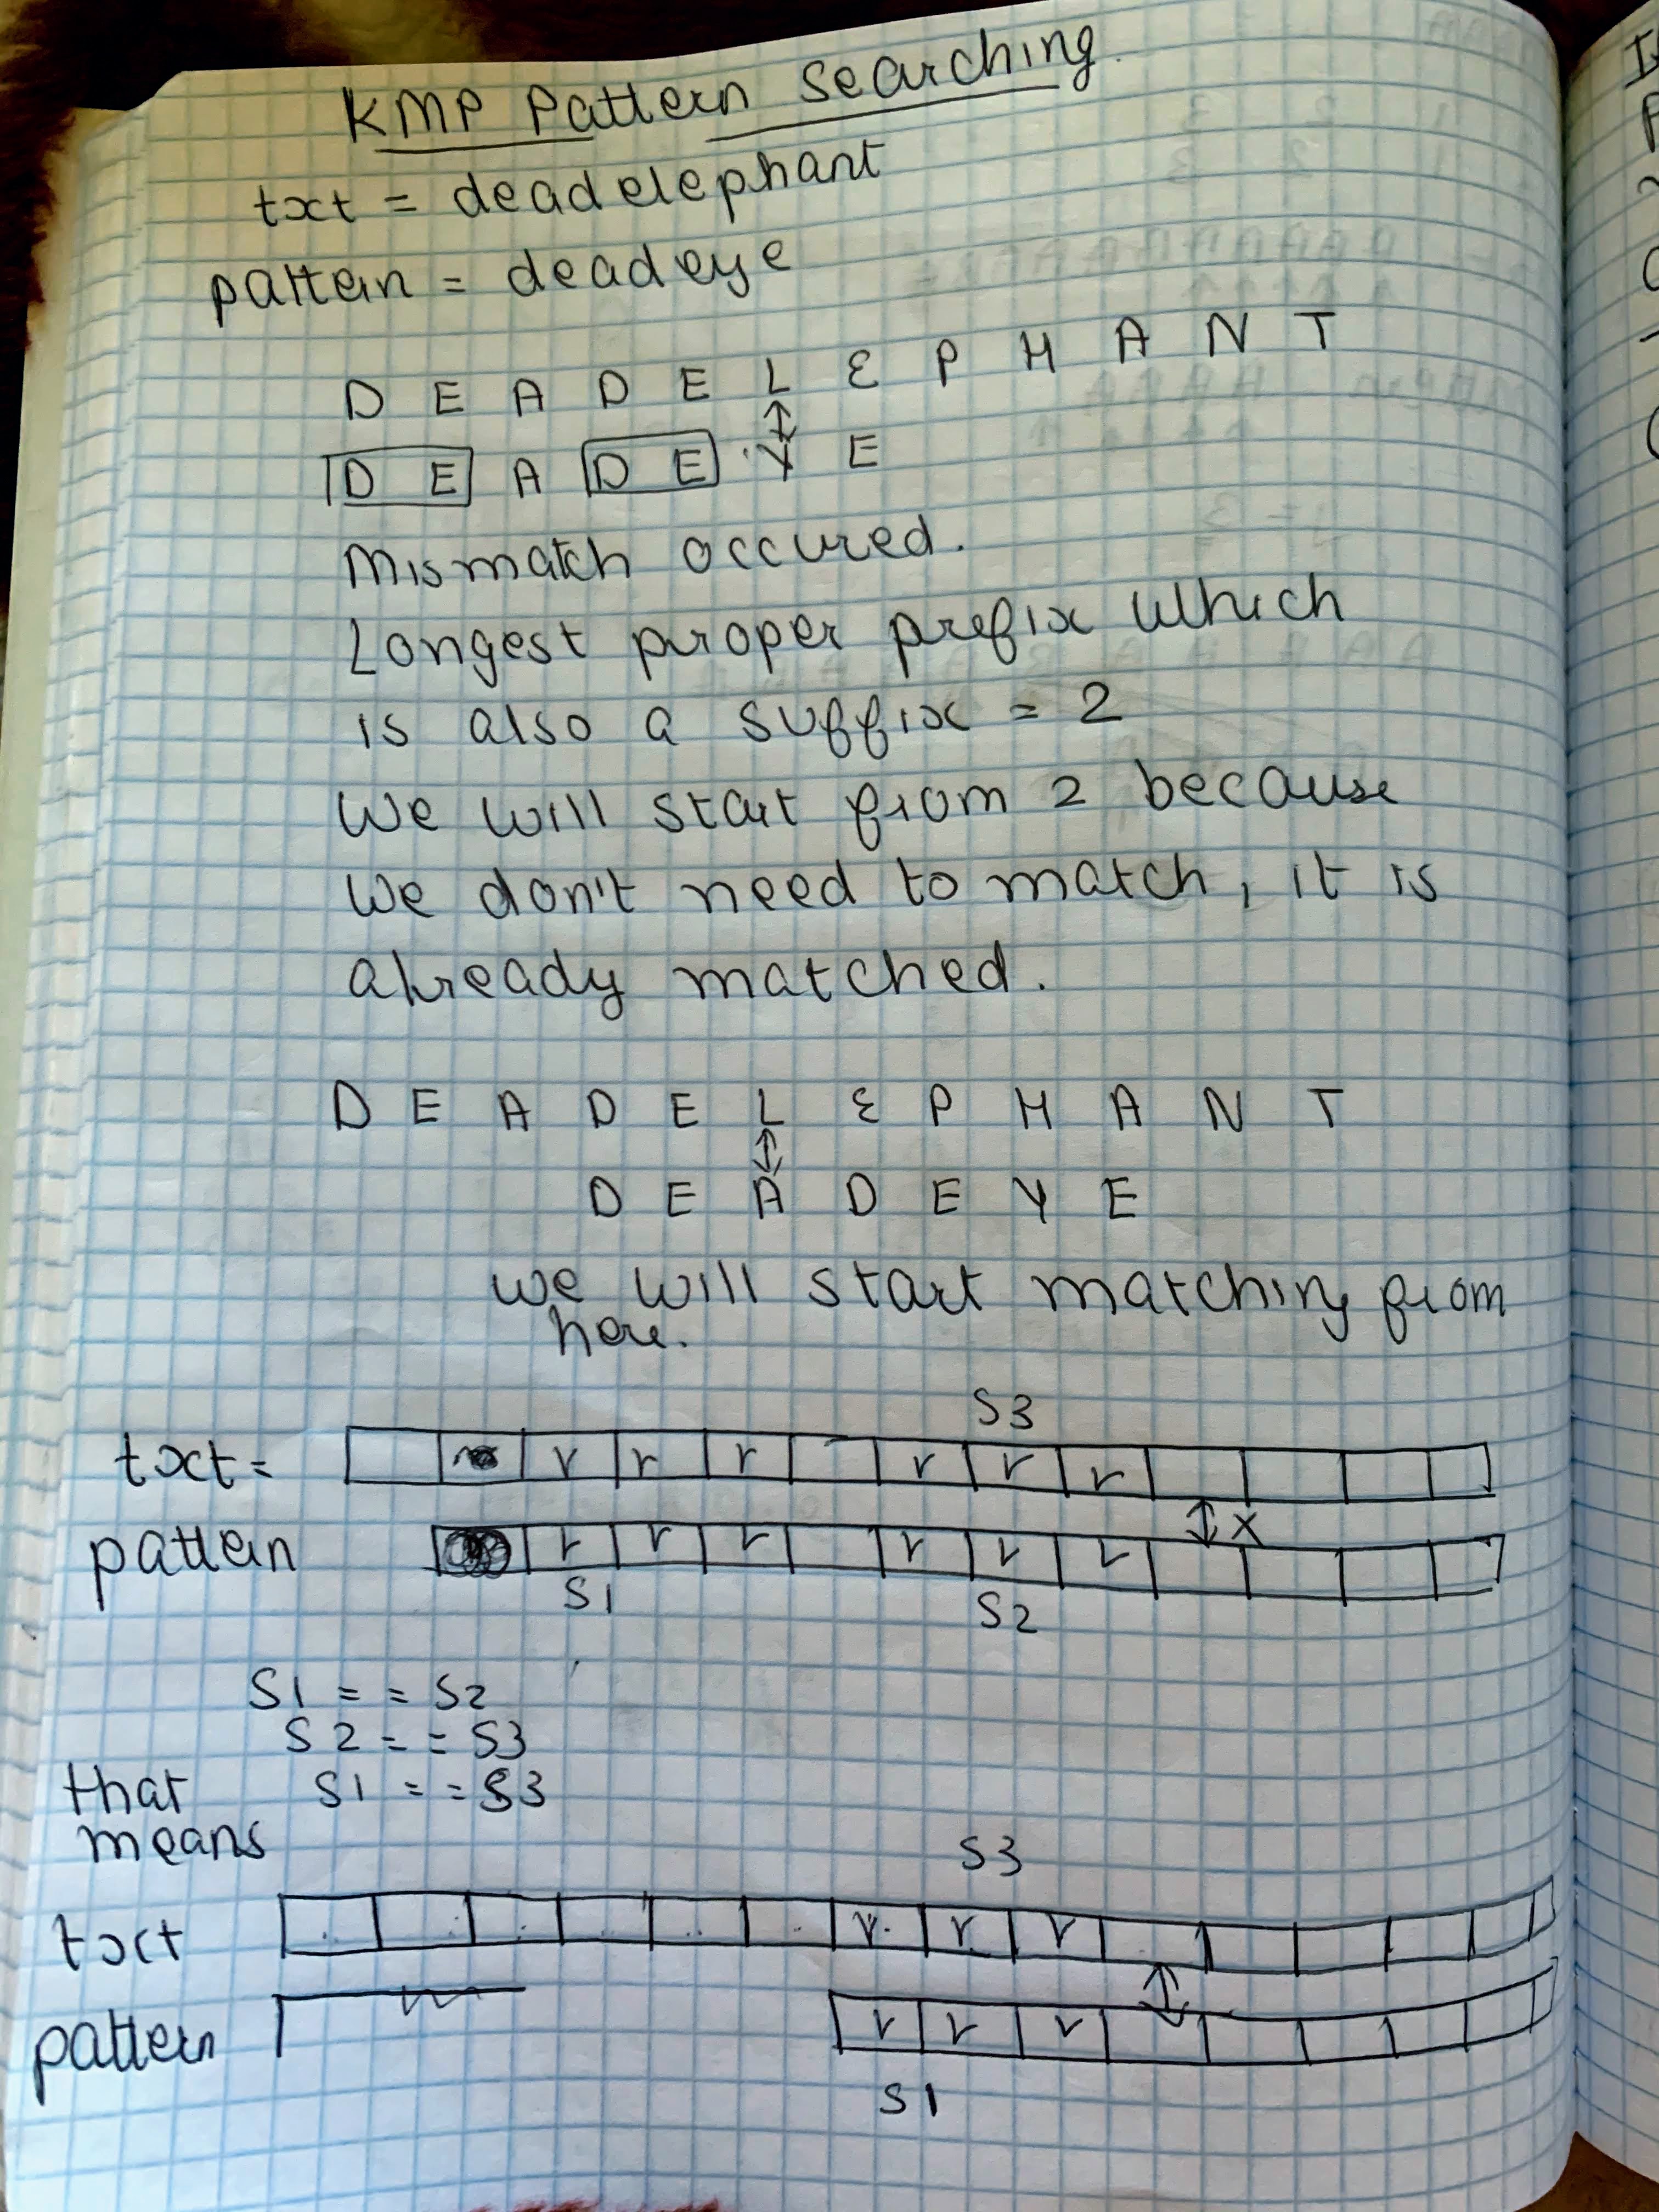 KMP Pattern Searching
txt = deadelephant
pattern = deadeye
D E A D E L E P H A N T
D E A D E Y E
Mismatch occured.
Longest proper prefix which
is also a suffix = 2
We will start from 2 because
we don't need to match, it is
already matched.
D E A D E L E P H A N T
D E A D E Y E
we will start matching from
here.
S3
txt =
X
pattern
S1 S2
S1 = = S2
S2 = = S3
that S1 = = S3
means
S3
txt
pattern
S1